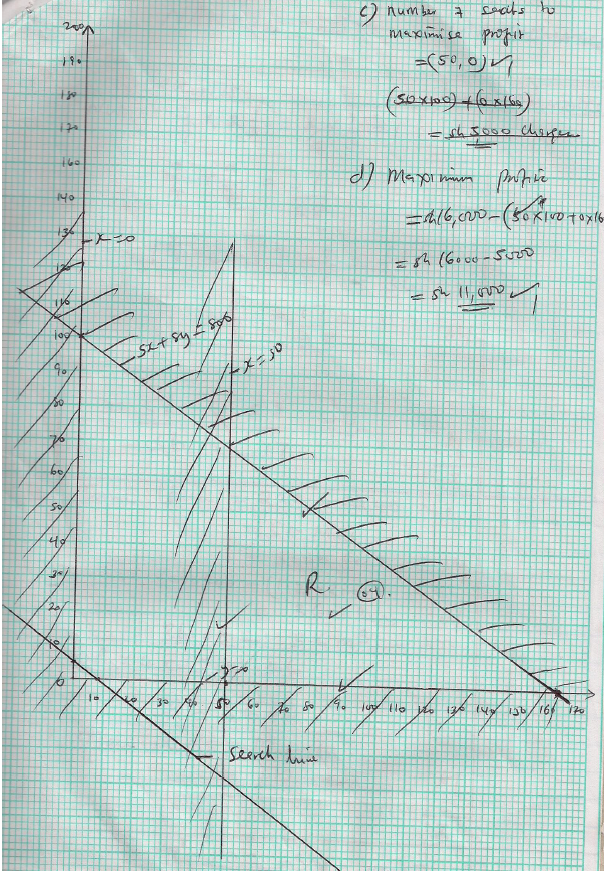 c) number of seats to
maximise profit
=(50, 0) ✓1
(50x100) + (0x160)
= sh 5000 Charges
d) Maximum profit
= sh16,000 - (50x100 + 0x16
= sh 16000 - 5000
= sh 11,000 ✓1
200
190
180
170
160
140
130
x=0
120
110
100
5x + 8y = 800
x=50
90
80
70
60
50
40
30
R
04
20
10
y=0
0
10 20 30 40 50 60 70 80 90 100 110 120 130 140 150 160 170
Search line